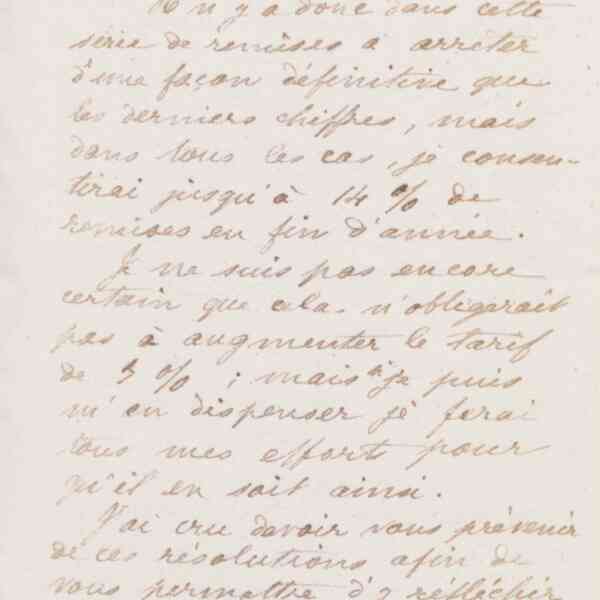 Il n'y a donc dans cette
série de remises à arrêter
d'une façon définitive que
les derniers chiffres, mais
dans tous les cas, je consen-
tirai jusqu'à 14 % de
remises en fin d'année.
Je ne suis pas encore
certain que cela n'obligerait
pas à augmenter le tarif
de 5 % ; mais si je puis
m'en dispenser je ferai
tous mes efforts pour
qu'il en soit ainsi.
J'ai cru devoir vous prévenir
de ces résolutions afin de
vous permettre d'y réfléchir